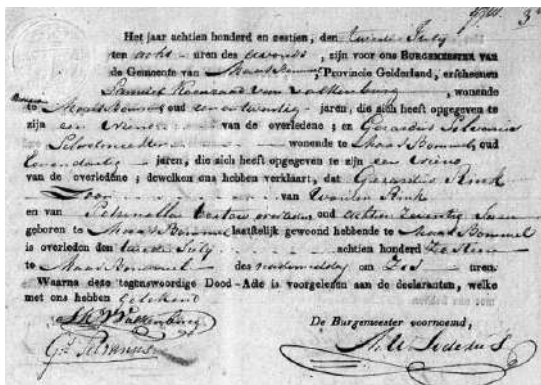 3
Het jaar achtien honderd en zestien, den tweede July
ten acht uren des avonds, zijn voor ons BURGEMEESTER VAN
de Gemeente van Maas Bommel, Provincie Gelderland, erschenen
Samuel Koenraad van Valkenburg, wonende
te Maas Bommel oud een en twintig jaren, die zich heeft opgegeven te
zijn een vriend van de overledene; en Gerardus
wonende te Maas Bommel oud
jaren, die zich heeft opgegeven te zijn een vriend
van de overledene; dewelken ons hebben verklaart, dat Gerardus Rink
Zoon van Rink
en van Petronella overleden, oud achten zeventig Jaren
geboren te Maas Bommel laatstelijk gewoond hebbende te Maas Bommel
is overleden den tweede July achtien honderd Zestien
te Maas Bommel des namiddag om Zes uren.
Waarna deze tegenswoordige Dood-Acte is voorgelezen aan de declaranten, welke
met ons hebben getekend
De Burgemeester voornoemd,